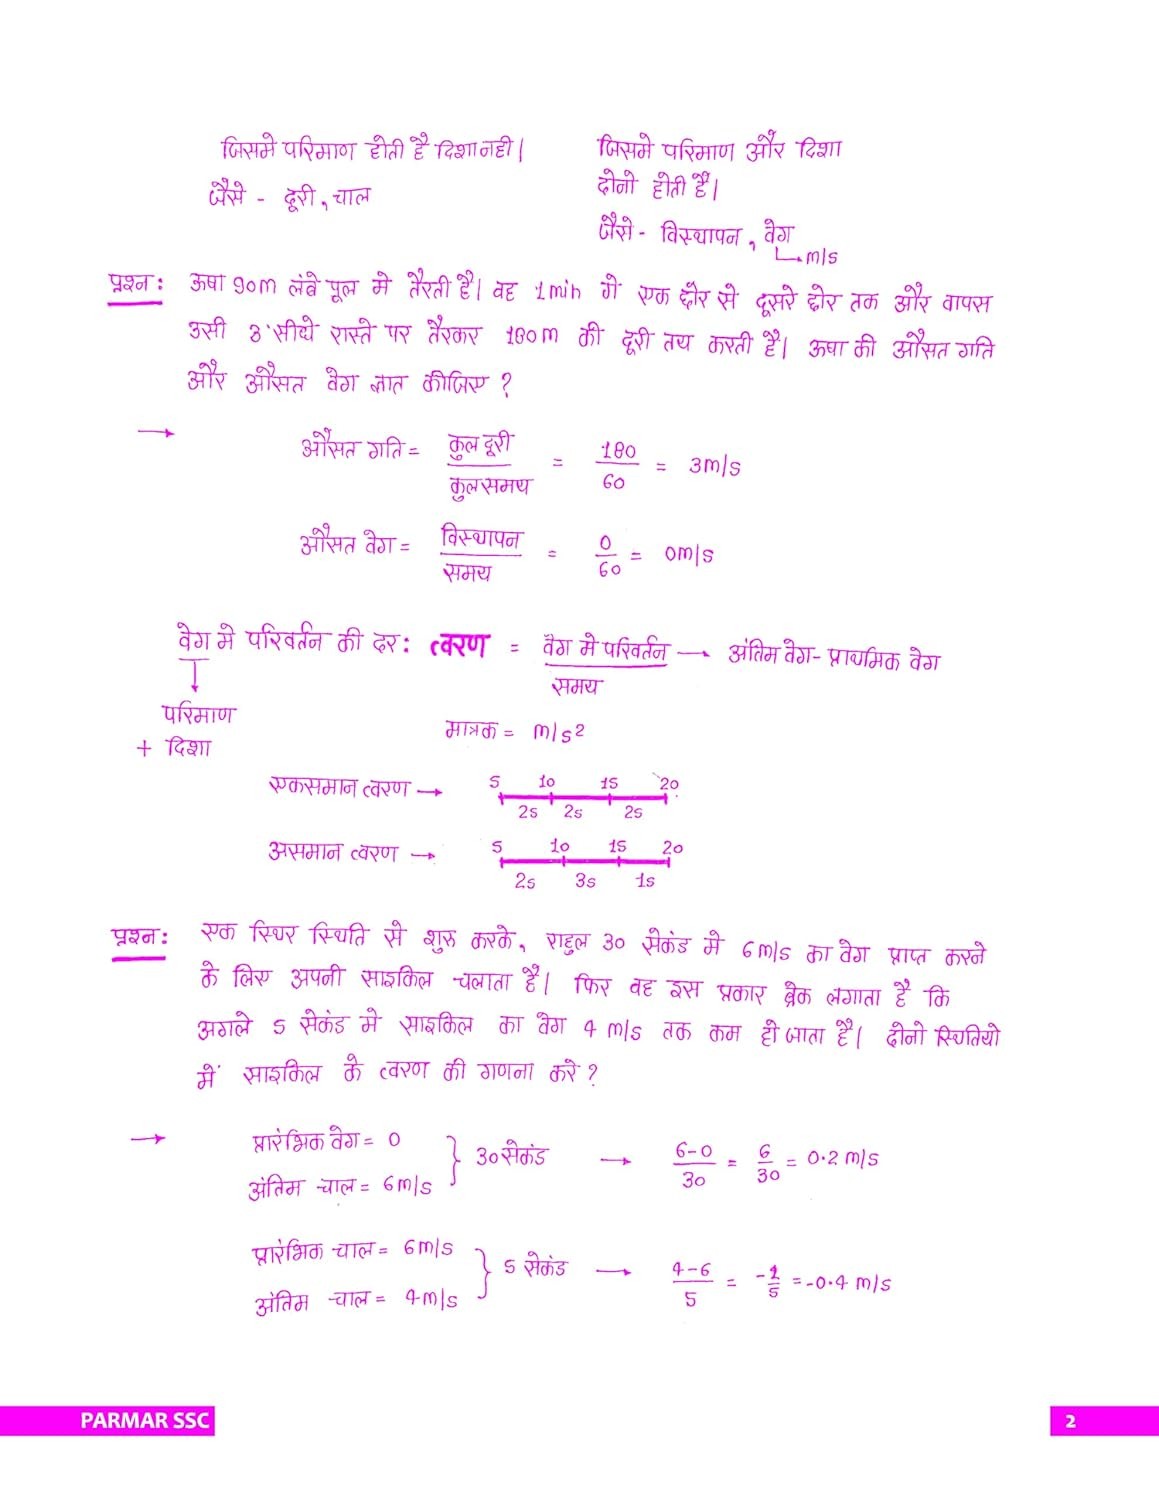 जिसमे परिमाण होती है दिशा नही।
जैसे - दूरी, चाल
जिसमे परिमाण और दिशा
दोनो होती है।
जैसे - विस्थापन, वेग
m/s
प्रश्न: ऊषा 90m लंबे पूल मे तैरती है। वह 1min मे एक छोर से दूसरे छोर तक और वापस
उसी सीधे रास्ते पर तैरकर 180m की दूरी तय करती है। ऊषा की औसत गति
और औसत वेग ज्ञात कीजिए ?
→ औसत गति = कुल दूरी / कुल समय = 180 / 60 = 3m/s
औसत वेग = विस्थापन / समय = 0 / 60 = 0m/s
वेग मे परिवर्तन की दर: त्वरण = वेग मे परिवर्तन / समय → अंतिम वेग - प्राथमिक वेग
परिमाण
+ दिशा
मात्रक = m/s²
एकसमान त्वरण → 5 10 15 20
2s 2s 2s
असमान त्वरण → 5 10 15 20
2s 3s 1s
प्रश्न: एक स्थिर स्थिति से शुरु करके, राहुल 30 सेकंड मे 6m/s का वेग प्राप्त करने
के लिए अपनी साइकिल चलाता है। फिर वह इस प्रकार ब्रेक लगाता है कि
अगले 5 सेकंड मे साइकिल का वेग 4 m/s तक कम हो जाता है। दोनो स्थितियो
में साइकिल के त्वरण की गणना करे ?
→ प्रारंभिक वेग = 0
अंतिम चाल = 6m/s } 30 सेकंड → 6-0 / 30 = 6 / 30 = 0.2 m/s
प्रारंभिक चाल = 6m/s
अंतिम चाल = 4m/s } 5 सेकंड → 4-6 / 5 = / 5 = -0.4 m/s
PARMAR SSC
2